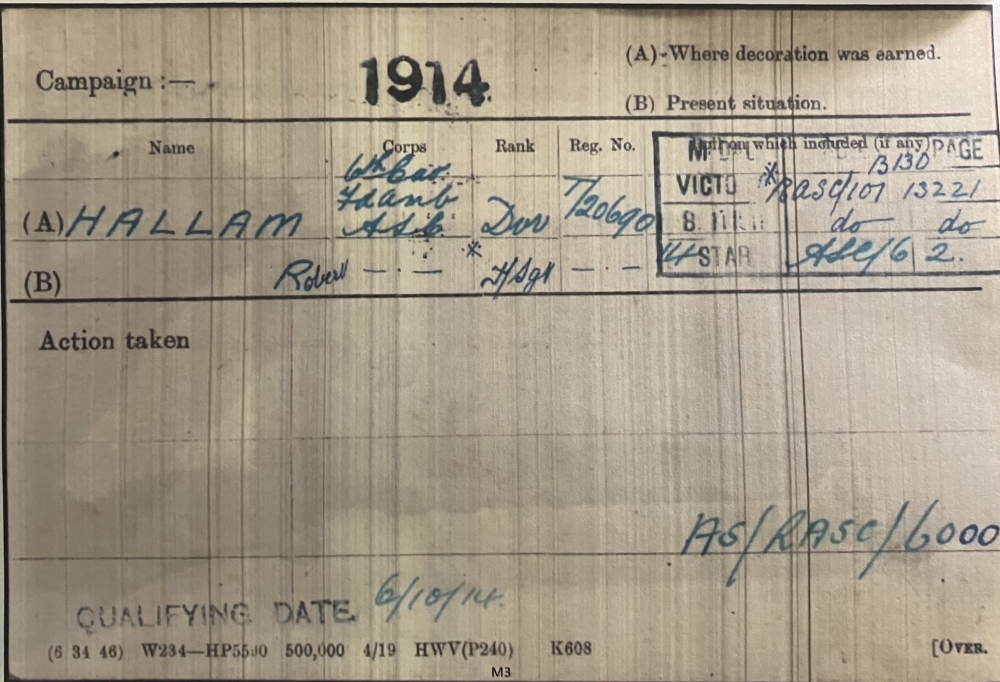 Campaign :— 1914 (A)-Where decoration was earned.
(B) Present situation.
Name Corps Rank Reg. No. which included (if any) PAGE
B130
VICTO *RASC/101 13221
(A) HALLAM ASC Dvr T/20690 do do
14 STAR ASC/6 2.
(B) Robert — — * T/Sgt — —
Action taken
AS/RASC/6000
QUALIFYING DATE 6/10/14.
(6 34 46) W234—HP5590 500,000 4/19 HWV(P240) K608 [OVER.
M3